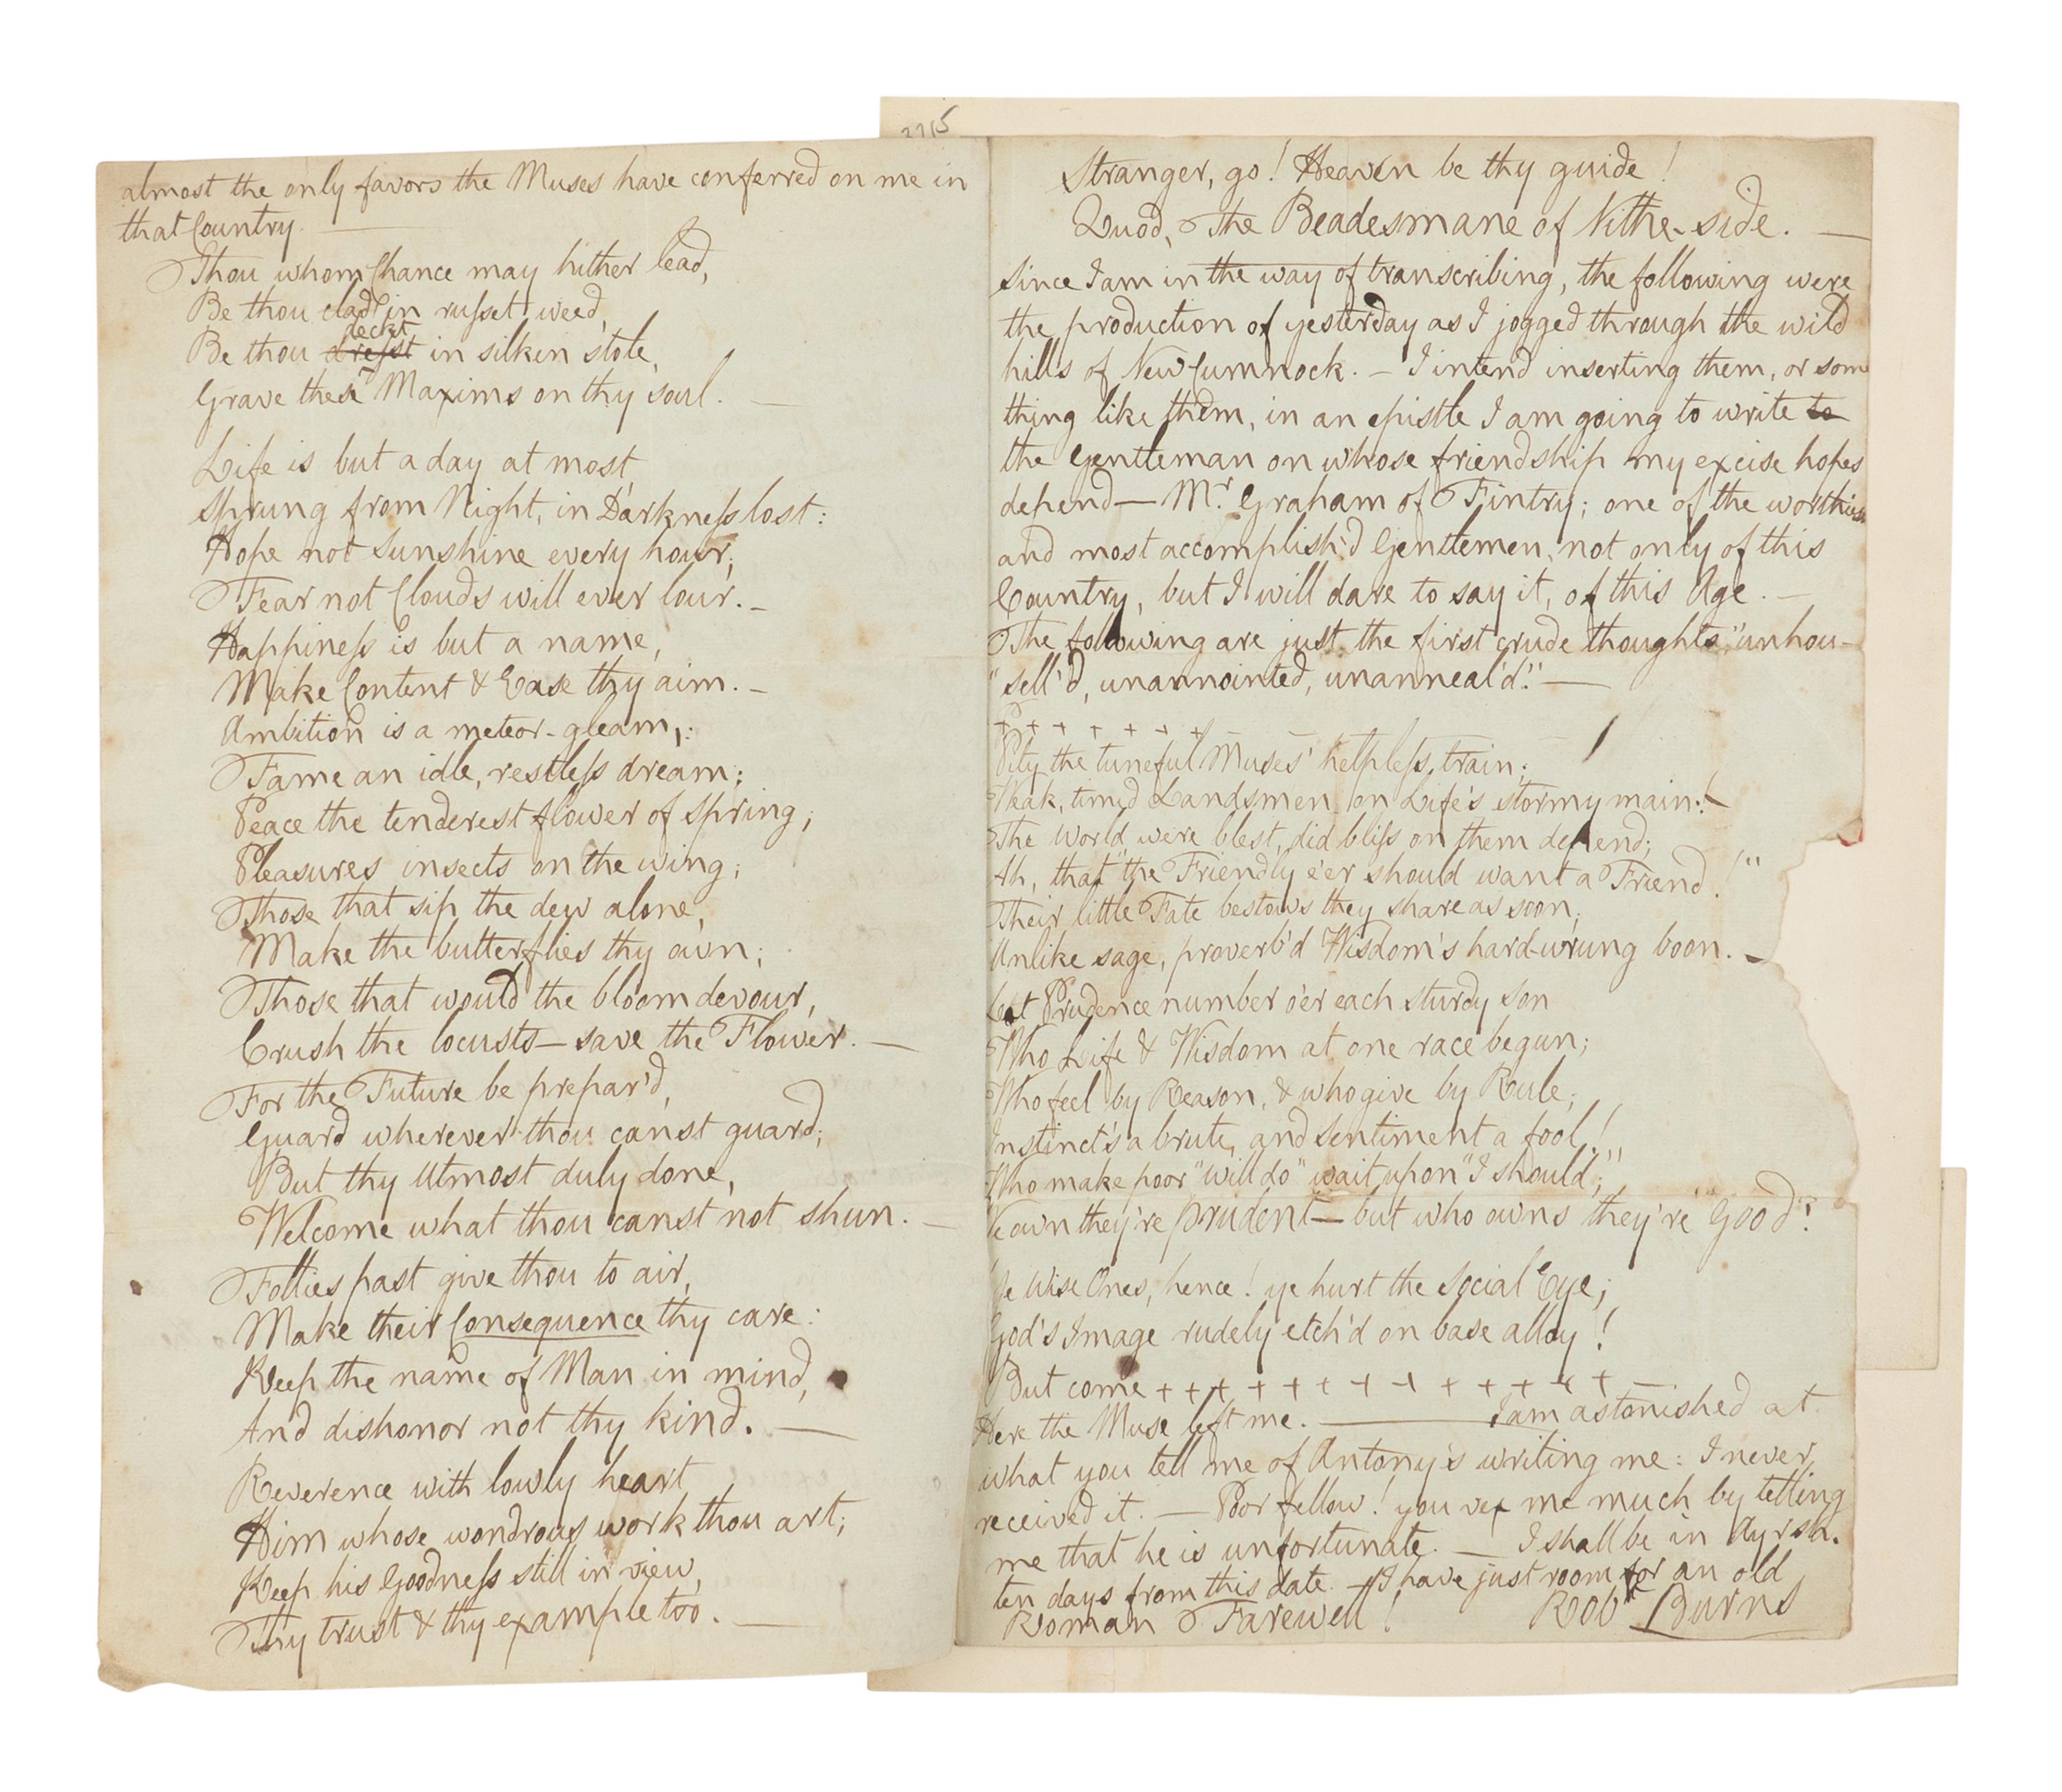 almost the only favors the Muses have conferred on me in
that Country.
Thou whom Chance may hither lead,
Be thou clad in russet weed,
deckt
Be thou drest in silken stole,
Grave these Maxims on thy soul. —
Life is but a day at most,
Sprung from Night, in Darkness lost:
Hope not Sunshine every hour,
Fear not Clouds will ever lour. —
Happiness is but a name,
Make Content & Ease thy aim. —
Ambition is a meteor-gleam,:
Fame an idle, restless dream;
Peace the tenderest flower of Spring;
Pleasures insects on the wing;
Those that sip the dew alone,
Make the butterflies thy own;
Those that would the bloom devour,
Crush the locusts — save the Flower. —
For the Future be prepar'd,
Guard wherever thou canst guard;
But thy Utmost duly done,
Welcome what thou canst not shun. —
Follies past give thou to air,
Make their Consequence thy care:
Keep the name of Man in mind,
And dishonor not thy kind. —
Reverence with lowly heart
Him whose wondrous work thou art;
Keep his Goodness still in view,
Thy trust & thy example too. —
2215
Stranger, go! Heaven be thy guide!
Quod, the Beadesmane of Nithe-side. —
Since I am in the way of transcribing, the following were
the production of yesterday as I jogged through the wild
hills of New Cumnock. — I intend inserting them, or som
thing like them, in an epistle I am going to write to
the Gentleman on whose friendship my excise hopes
depend — Mr. Graham of Fintry; one of the worthiest
and most accomplish'd Gentlemen, not only of this
Country, but I will dare to say it, of this Age. —
The following are just the first crude thoughts "unhou-
"sell'd, unannointed, unanneal'd." —
+ + + + + + + — — — —
Pity the tuneful Muses' helpless train;
Weak, timid Landsmen on Life's stormy main:
The World were blest, did bliss on them depend;
Ah, that "the Friendly e'er should want a Friend!"
Their little Fate bestows they share as soon,
Unlike sage, proverb'd Wisdom's hard-wrung boon. —
Let Prudence number o'er each sturdy son
Who Life & Wisdom at one race begun;
Who feel by Reason, & who give by Rule;
Instinct's a brute, and Sentiment a fool!
Who make poor "will do" wait upon "I should";
We own they're prudent — but who owns they're "Good"?
Ye Wise Ones, hence! ye hurt the Social Eye;
God's Image rudely etch'd on base alloy!
But come + + + + + + + + + + + + + —
Here the Muse left me. — I am astonished at
what you tell me of Antony's writing me: I never
received it. — Poor fellow! you vex me much by telling
me that he is unfortunate. — I shall be in Ayrsh.
ten days from this date. — I have just room for an old
Roman Farewell! Robt Burns